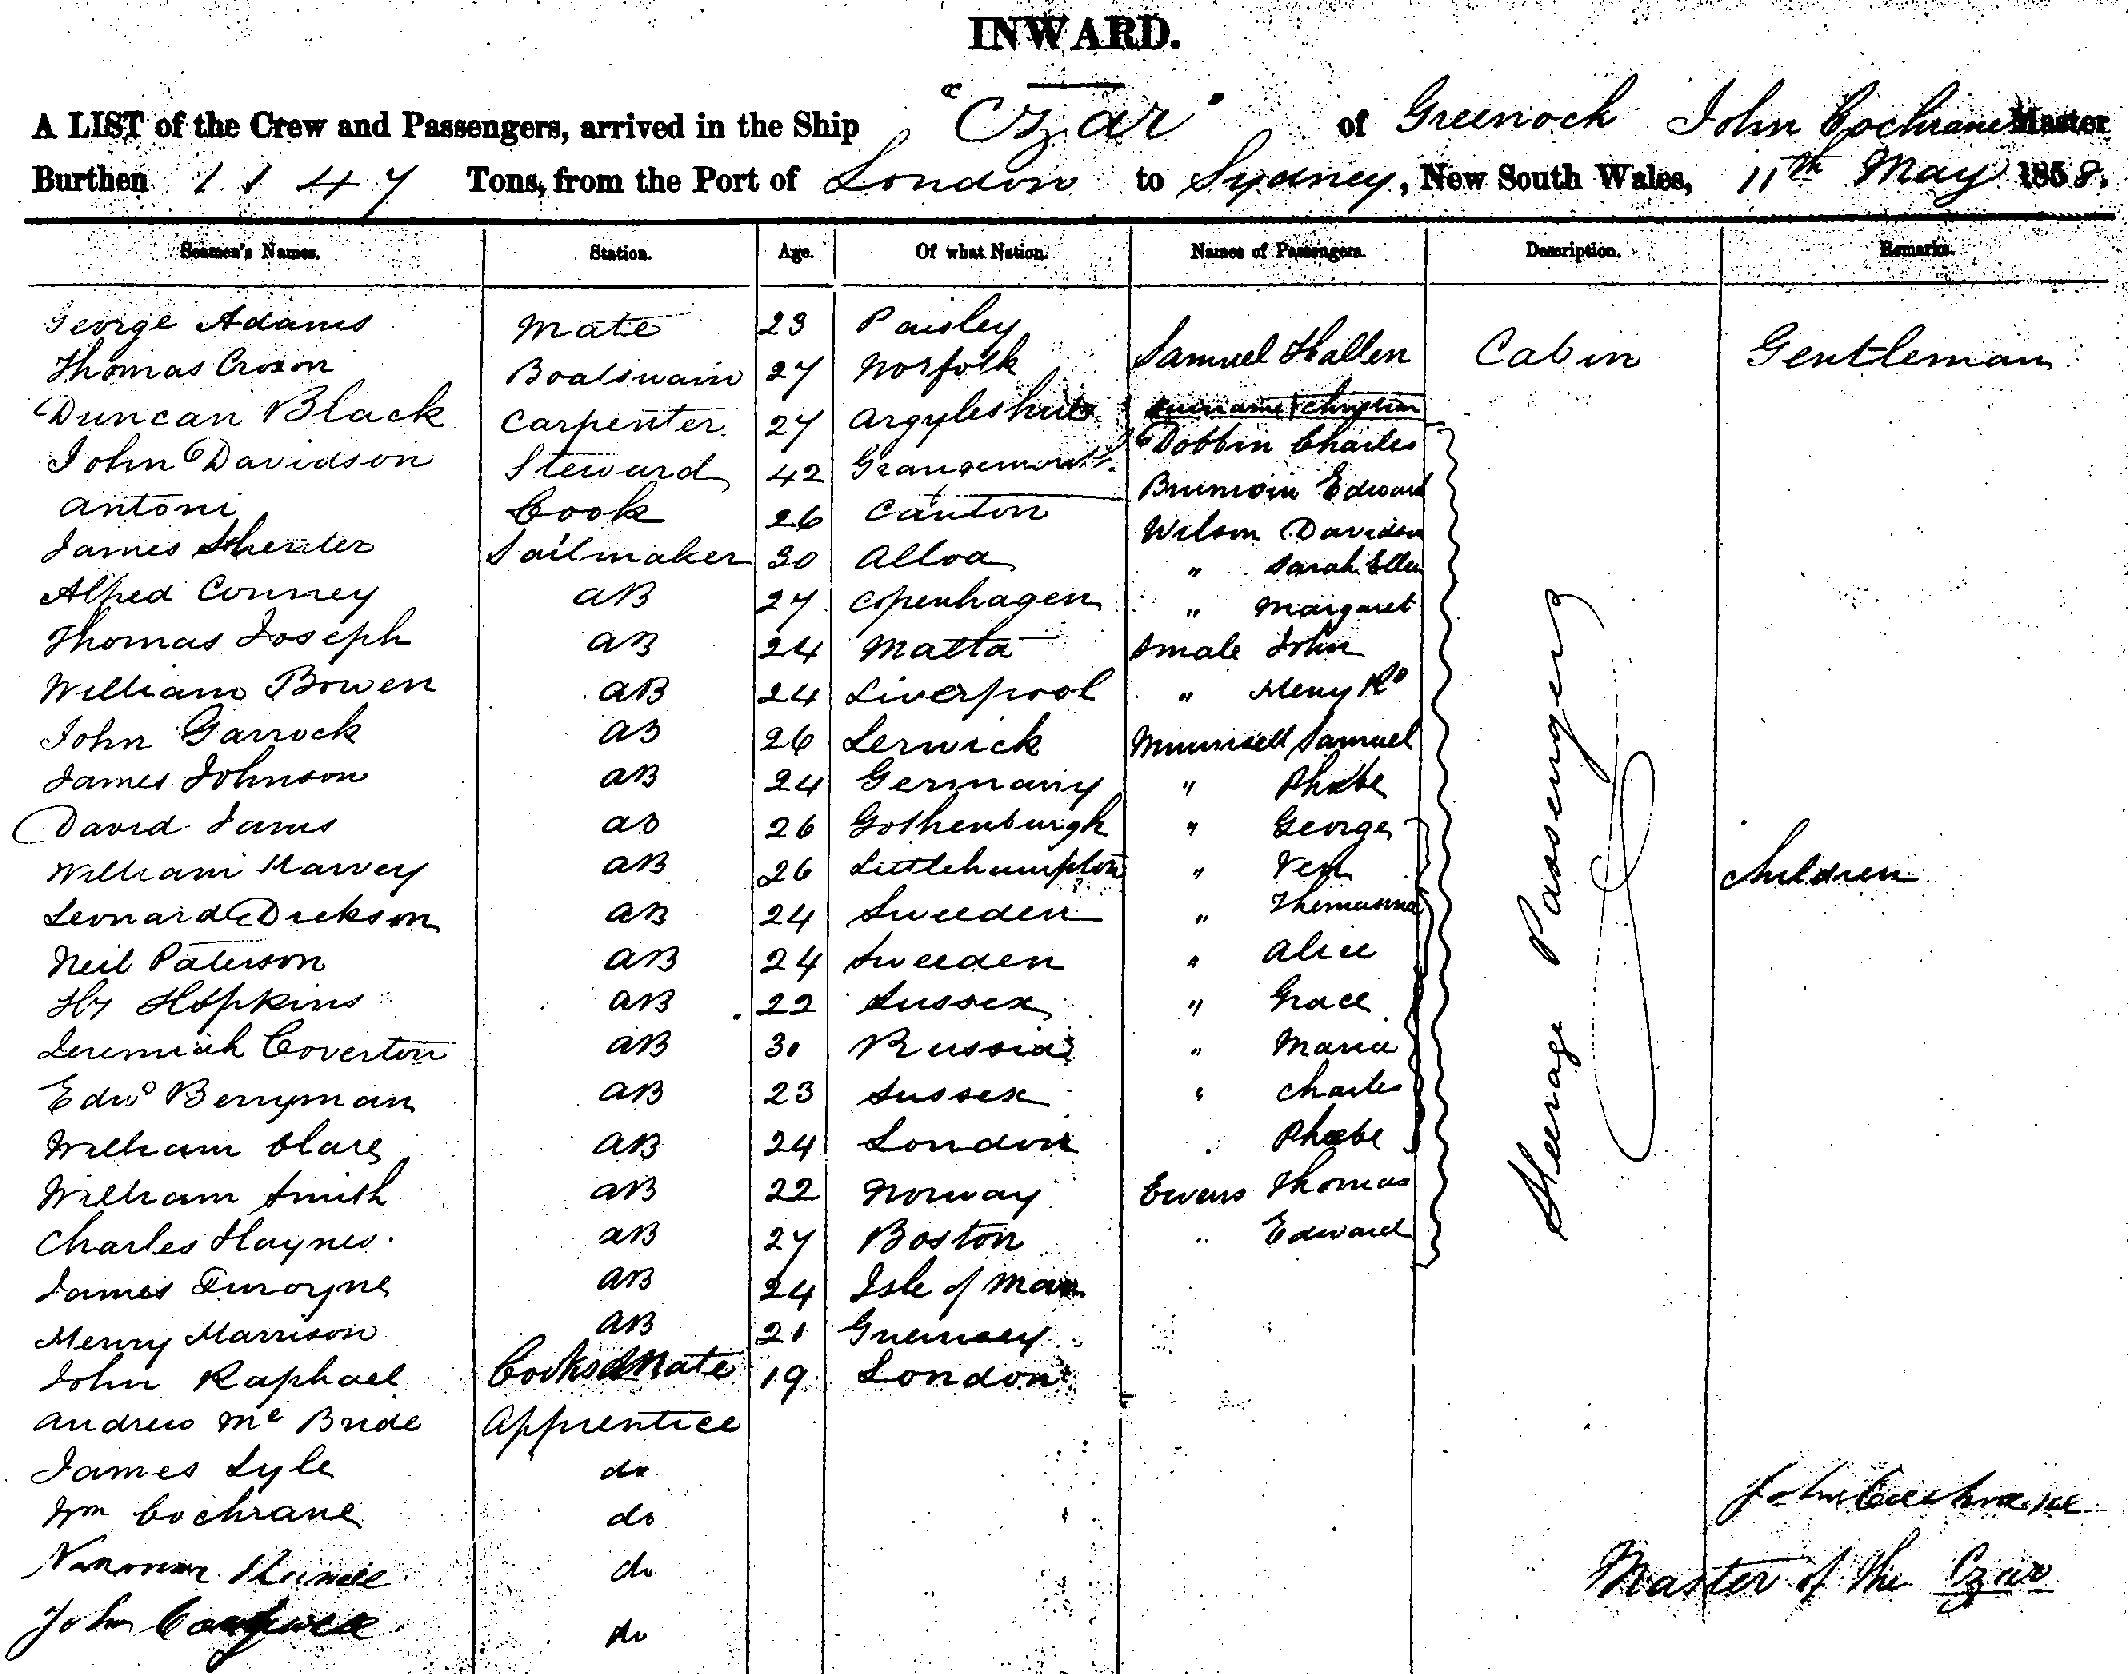 INWARD.
A LIST of the Crew and Passengers, arrived in the Ship "Czar" of Greenock John Cochrane Master
Burthen 1147 Tons, from the Port of London to Sydney, New South Wales, 11th May 1858.
Seamen's Names. Station. Age. Of what Nation. Names of Passengers. Description. Remarks.
George Adams Mate 23 Paisley
Samuel Hallen Cabin Gentleman
Thomas Croxon Boatswain 27 Norfolk
Surname Christian
Duncan Black Carpenter 27 Argyleshire
Dobbin Charles
John Davidson Steward 42 Grangemouth
Edward
Antoni Cook 26 Canton
Wilson Davidson
James Sailmaker 30 Alloa
" Sarah Ellen
Alfred Conney AB 27 Copenhagen
" Margaret
Thomas Joseph AB 24 Malta Smale John
William Bowen AB 24 Liverpool " Henry Rd
John Garrock AB 26 Lerwick Munnisell Samuel
James Johnson AB 24 Germany " Phœbe
David James AB 26 Gothenburgh " George
William Harvey AB 26 Littlehampton "
Children
Leonard Dickson AB 24 Sweeden " Thomasina
Neil Paterson AB 24 Sweeden " Alice
Hy Hopkins AB 22 Sussex " Grace
Jeremiah Coverton AB 30 Russia " Maria
Edwd Berryman AB 23 Sussex " Charles
William Clare AB 24 London " Phœbe
William Smith AB 22 Norway Ewens Thomas
Charles Haynes AB 27 Boston " Edward
Steerage Passengers
James AB 24 Isle of Man
Henry Harrison AB 21 Guernsey
John Raphael Cooks Mate 19 London
Andrew Mc Bride Apprentice
James Lyle do
Wm Cochrane do
John Cochrane
do
Master of the Czar
John do